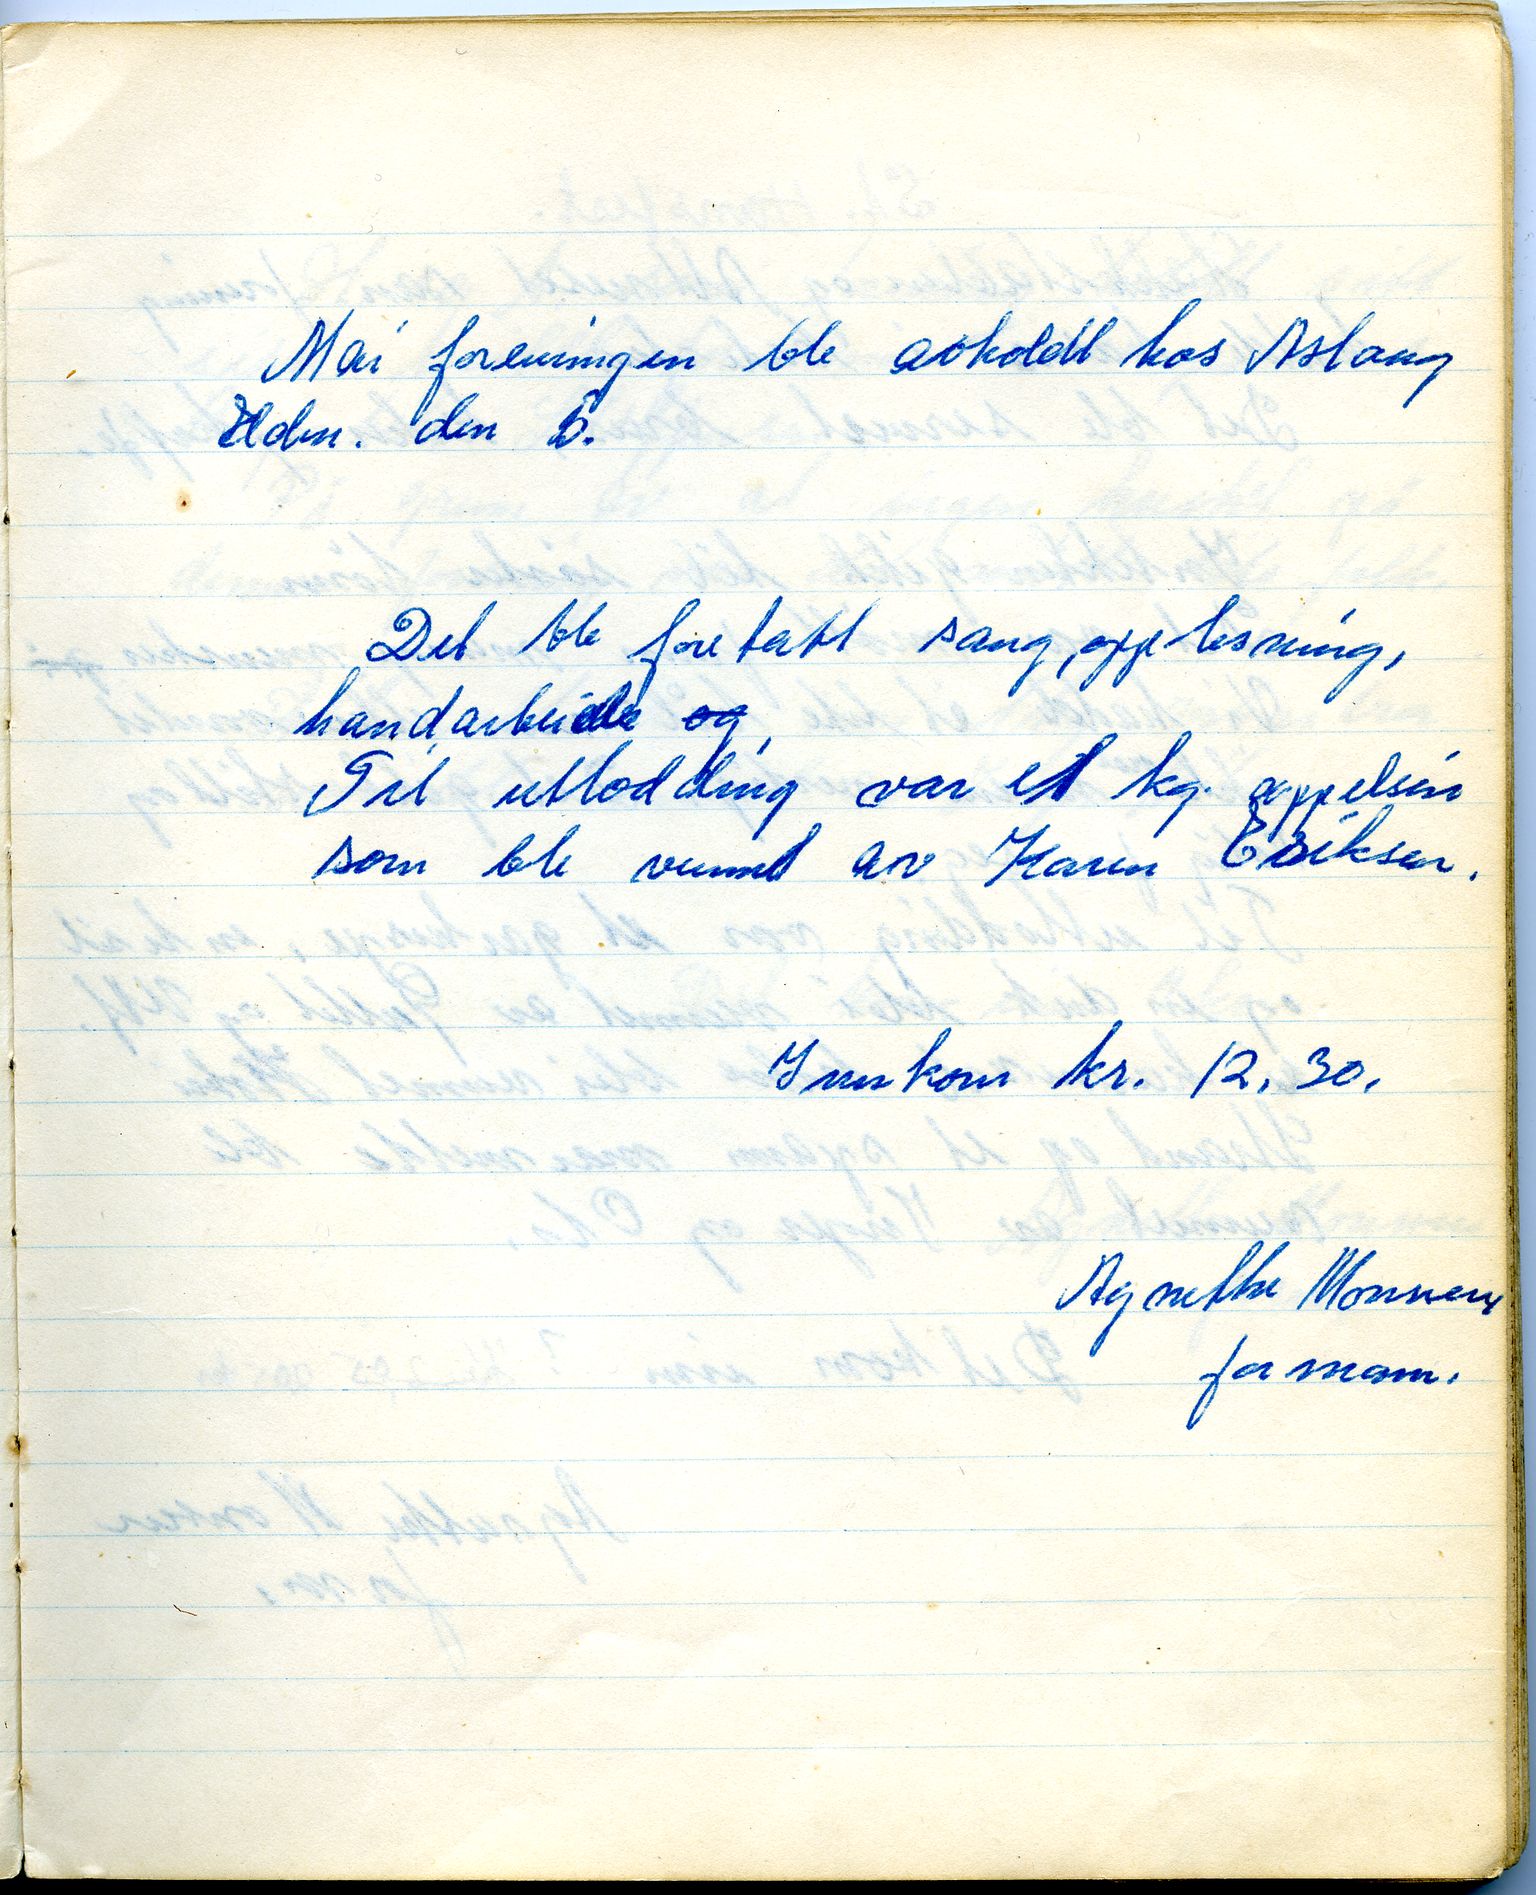 Mai foreningen ble avholdt hos Aslaug
Elden. den 6.
Det ble foretatt sang, opplesning,
handarbeide og,
Til utlodding var et kg. appelsin
som ble vunnet av Karen Eriksen.
Innkom kr. 12,30.
Agnethe Monsen
formann.